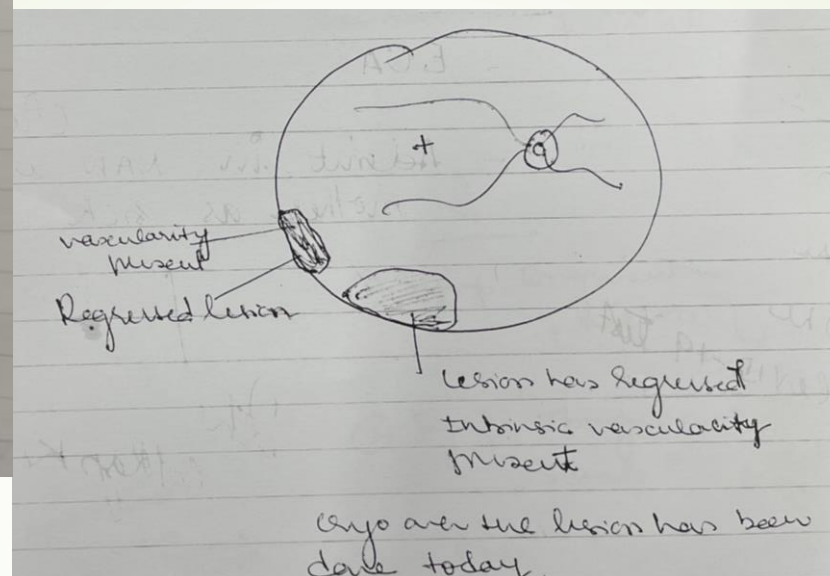 +
vascularity
present
Regressed lesion
Lesion has Regressed
Intrinsic vascularity
present
cryo over the lesion has been
done today